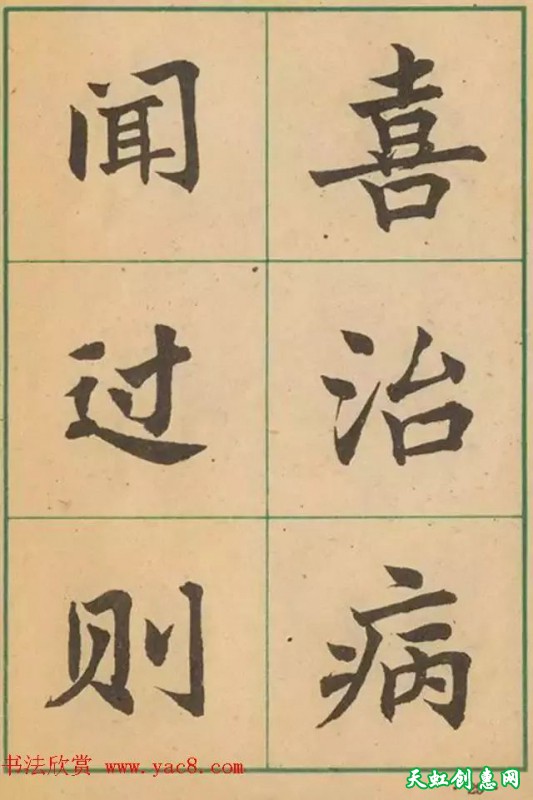 闻过则
喜治病
书法欣赏 www.yac8.com
天虹创惠网